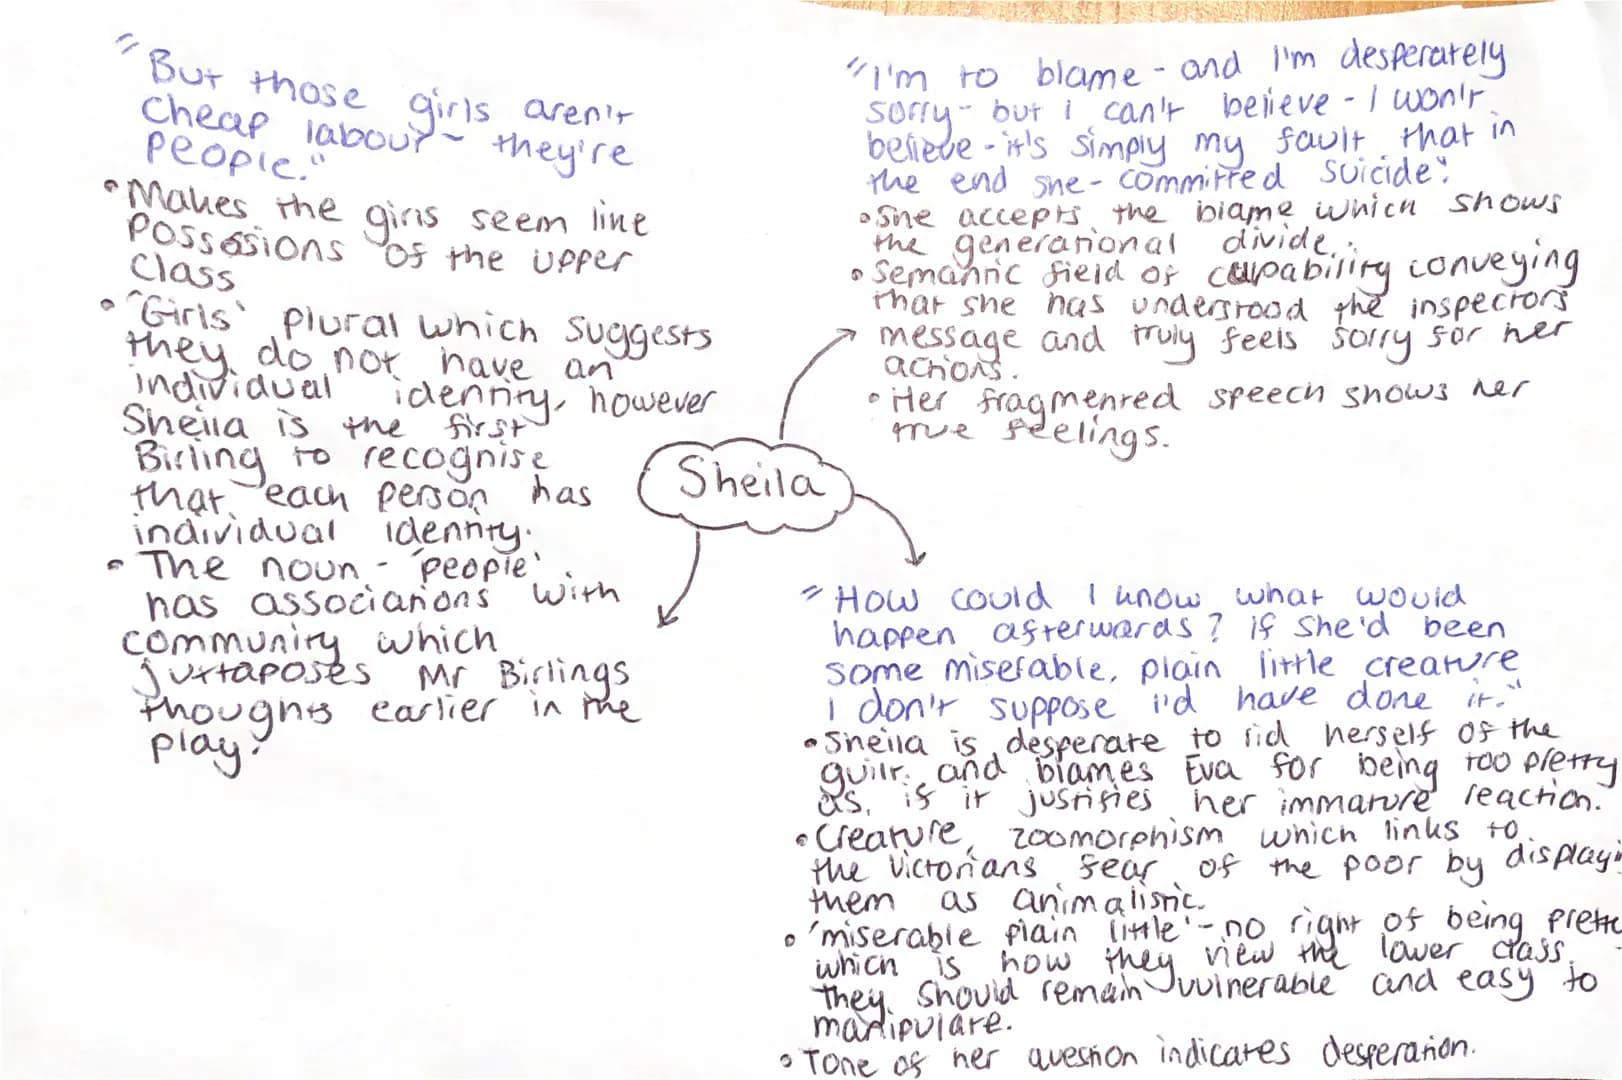 "But those girls aren't
cheap labour - they're
people."
• Makes the girls seem like
possessions of the upper
class
• 'Girls' plural which suggests
they do not have an
individual identity, however
Sheila is the first
Birling to recognise
that each person has
individual identity.
• The noun - 'people'
has associations with
community which
juxtaposes Mr Birlings
thoughts earlier in the
play.
"I'm to blame - and I'm desperately
sorry - but I can't believe - I won't
believe - it's simply my fault that in
the end she - committed suicide."
• She accepts the blame which shows
the generational divide.
• Semantic field of culpability conveying
that she has understood the inspectors
message and truly feels sorry for her
actions.
• Her fragmented speech shows her
true feelings.
Sheila
"How could I know what would
happen afterwards? if she'd been
some miserable, plain little creature
I don't suppose i'd have done it."
• Sheila is desperate to rid herself of the
guilt and blames Eva for being too pretty
as if it justifies her immature reaction.
• Creature, zoomorphism which links to
the Victorians fear of the poor by displayi
them as animalistic.
• 'miserable plain little' - no right of being prett
which is how they view the lower class.
they should remain vulnerable and easy to
manipulate.
• Tone of her question indicates desperation.